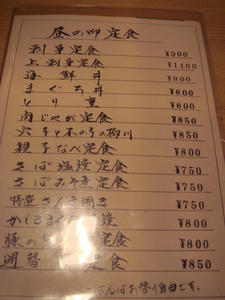 昼の御定食
刺身定食 ¥900
上刺身定食 ¥1100
海鮮丼 ¥900
まぐろ丼 ¥800
とり重 ¥800
肉じゃが定食 ¥850
穴子と木の子の柳川 ¥850
親子なべ定食 ¥800
さば塩焼定食 ¥750
さばみそ煮定食 ¥750
特選さんま開き ¥750
かじきまぐろ ¥800
豚の 定食 ¥800
週替 定食 ¥850
ごはんはお替り自由です。